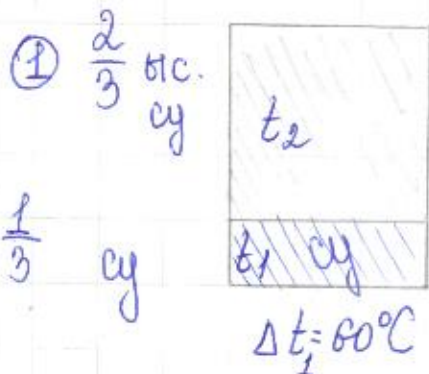 ① 2/3 ыс.
су
t₂
1/3 су
t₁ су
Δt₁=60°C